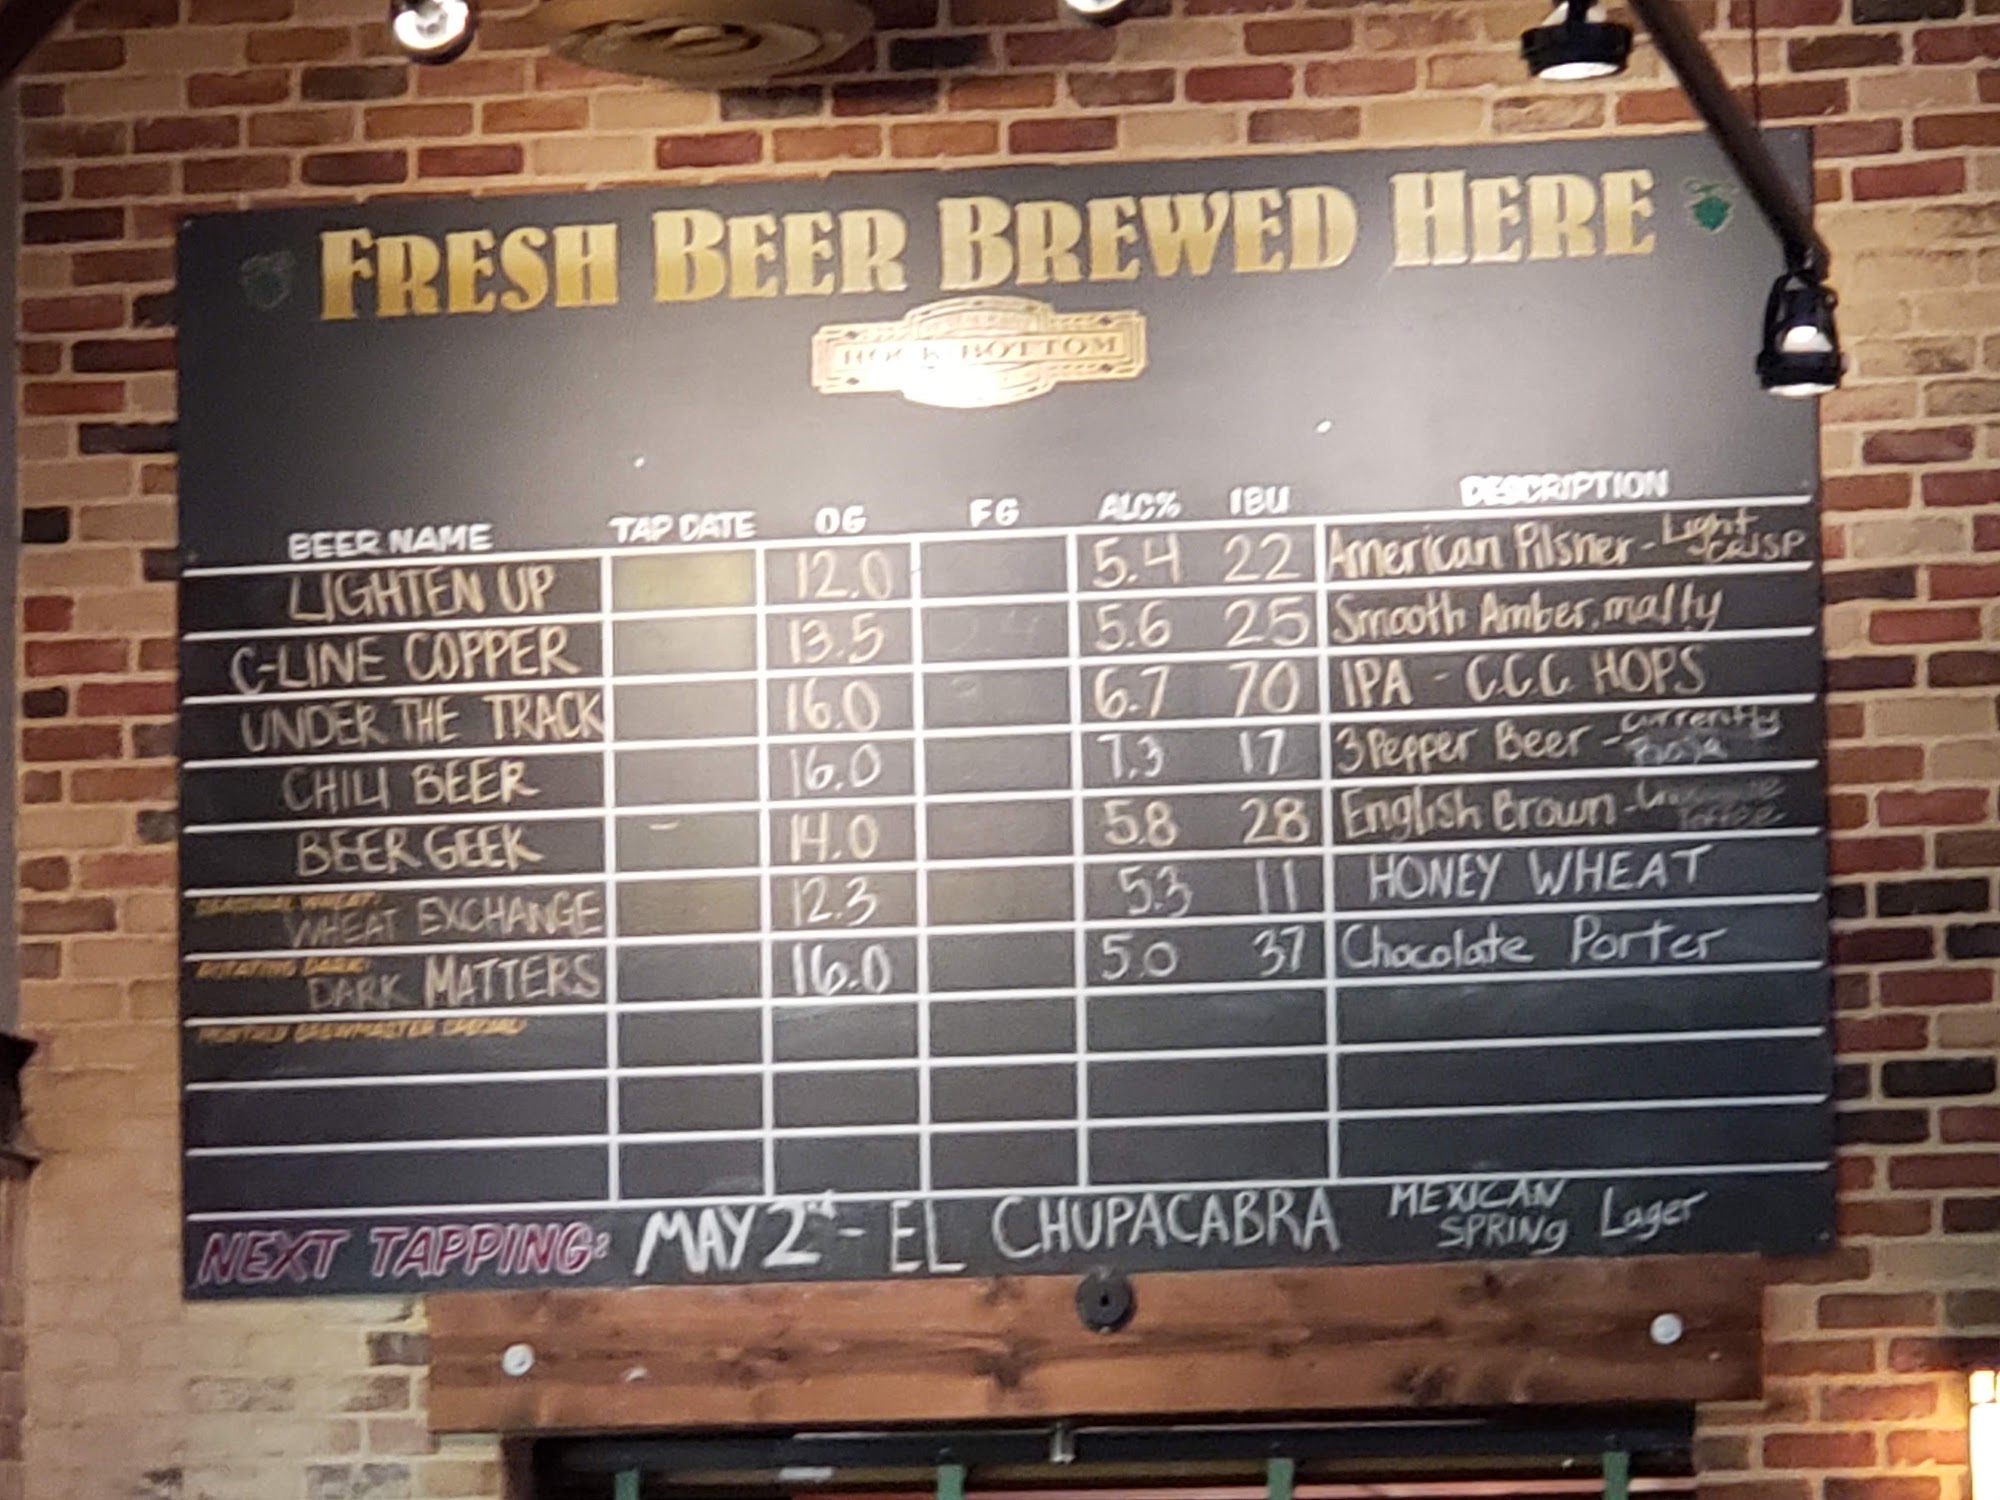 FRESH BEER BREWED HERE
ROCK BOTTOM
BEER NAME TAP DATE OG FG ALC% IBU DESCRIPTION
LIGHTEN UP 12.0 5.4 22 American Pilsner - Light CRISP
C-LINE COPPER 13.5 5.6 25 Smooth Amber, malty
UNDER THE TRACK 16.0 6.7 70 IPA - C.C.C. HOPS
CHILI BEER 16.0 7.3 17 3 Pepper Beer - currently
BEER GEEK 14.0 5.8 28 English Brown -
SEASONAL WHEAT:
WHEAT EXCHANGE 12.3 5.3 11 HONEY WHEAT
ROTATING DARK:
DARK MATTERS 16.0 5.0 37 Chocolate Porter
MONTHLY BREWMASTER SPECIAL:
NEXT TAPPING: MAY 2nd - EL CHUPACABRA MEXICAN SPRING Lager